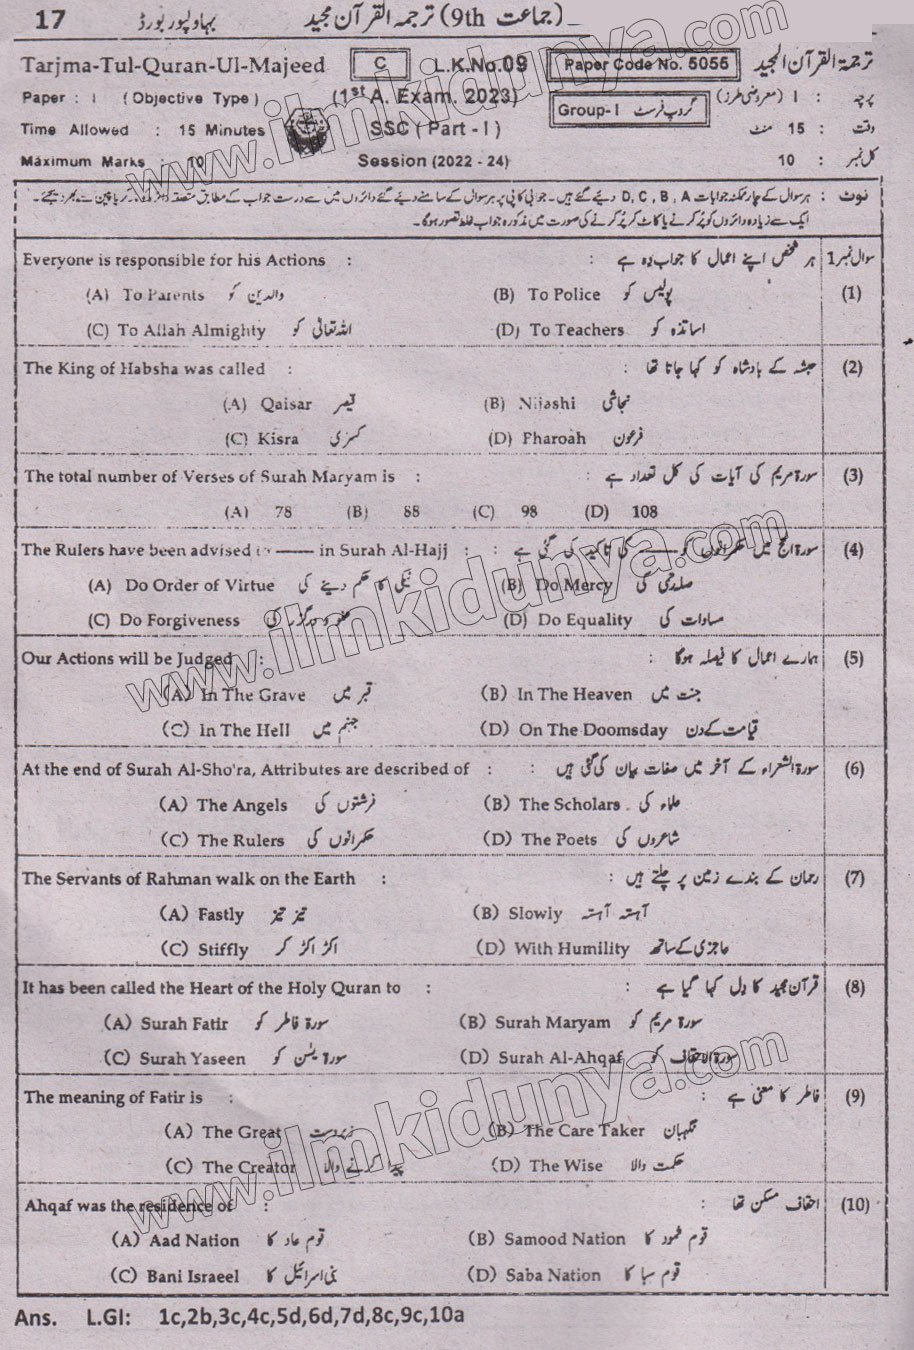 17 بہاولپور بورڈ ترجمۃ القرآن مجید (9th جماعت)
Tarjma-Tul-Quran-Ul-Majeed C L.K.No.09 Paper Code No. 5055 ترجمۃ القرآن المجید
Paper : I (Objective Type) (1st A. Exam. 2023) Group-I گروپ فرسٹ پرچہ : I (معروضی طرز)
Time Allowed : 15 Minutes SSC (Part - I) وقت : 15 منٹ
Maximum Marks : 10 Session (2022 - 24) کل نمبر : 10
نوٹ : ہر سوال کے چار ممکنہ جوابات D, C, B, A دیئے گئے ہیں۔ جوابی کاپی پر ہر سوال کے سامنے دیئے گئے دائروں میں سے درست جواب کے مطابق متعلقہ دائرہ کو مارکر یا پین سے بھر دیجئے۔
ایک سے زیادہ دائروں کو پُر کرنے یا کاٹ کر پُر کرنے کی صورت میں مذکورہ جواب غلط تصور ہوگا۔
Everyone is responsible for his Actions : ہر شخص اپنے اعمال کا جواب دہ ہے : سوال نمبر 1
(A) To Parents والدین کو (B) To Police پولیس کو (1)
(C) To Allah Almighty اللہ تعالیٰ کو (D) To Teachers اساتذہ کو
The King of Habsha was called : حبشہ کے بادشاہ کو کہا جاتا تھا : (2)
(A) Qaisar قیصر (B) Nijashi نجاشی
(C) Kisra کسریٰ (D) Pharoah فرعون
The total number of Verses of Surah Maryam is : سورۃ مریم کی آیات کی کل تعداد ہے : (3)
(A) 78 (B) 88 (C) 98 (D) 108
The Rulers have been advised to —— in Surah Al-Hajj : سورۃ الحج میں حکمرانوں کو —— کی تاکید کی گئی ہے : (4)
(A) Do Order of Virtue نیکی کا حکم دینے کی (B) Do Mercy صلہ رحمی کی
(C) Do Forgiveness عفو و درگزر کی (D) Do Equality مساوات کی
Our Actions will be Judged : ہمارے اعمال کا فیصلہ ہوگا : (5)
(A) In The Grave قبر میں (B) In The Heaven جنت میں
(C) In The Hell جہنم میں (D) On The Doomsday قیامت کے دن
At the end of Surah Al-Sho'ra, Attributes are described of : سورۃ الشعراء کے آخر میں صفات بیان کی گئی ہیں : (6)
(A) The Angels فرشتوں کی (B) The Scholars علماء کی
(C) The Rulers حکمرانوں کی (D) The Poets شاعروں کی
The Servants of Rahman walk on the Earth : رحمان کے بندے زمین پر چلتے ہیں : (7)
(A) Fastly تیز تیز (B) Slowly آہستہ آہستہ
(C) Stiffly اکڑ اکڑ کر (D) With Humility عاجزی کے ساتھ
It has been called the Heart of the Holy Quran to : قرآن مجید کا دل کہا گیا ہے : (8)
(A) Surah Fatir سورۃ فاطر کو (B) Surah Maryam سورۃ مریم کو
(C) Surah Yaseen سورۃ یٰسٓ کو (D) Surah Al-Ahqaf سورۃ الاحقاف کو
The meaning of Fatir is : فاطر کا معنی ہے : (9)
(A) The Great زبردست (B) The Care Taker نگہبان
(C) The Creator پیدا کرنے والا (D) The Wise حکمت والا
Ahqaf was the residence of : احقاف مسکن تھا : (10)
(A) Aad Nation قوم عاد کا (B) Samood Nation قوم ثمود کا
(C) Bani Israeel بنی اسرائیل کا (D) Saba Nation قوم سبا کا
Ans. L.GI: 1c,2b,3c,4c,5d,6d,7d,8c,9c,10a
www.ilmkidunya.com
www.ilmkidunya.com
www.ilmkidunya.com